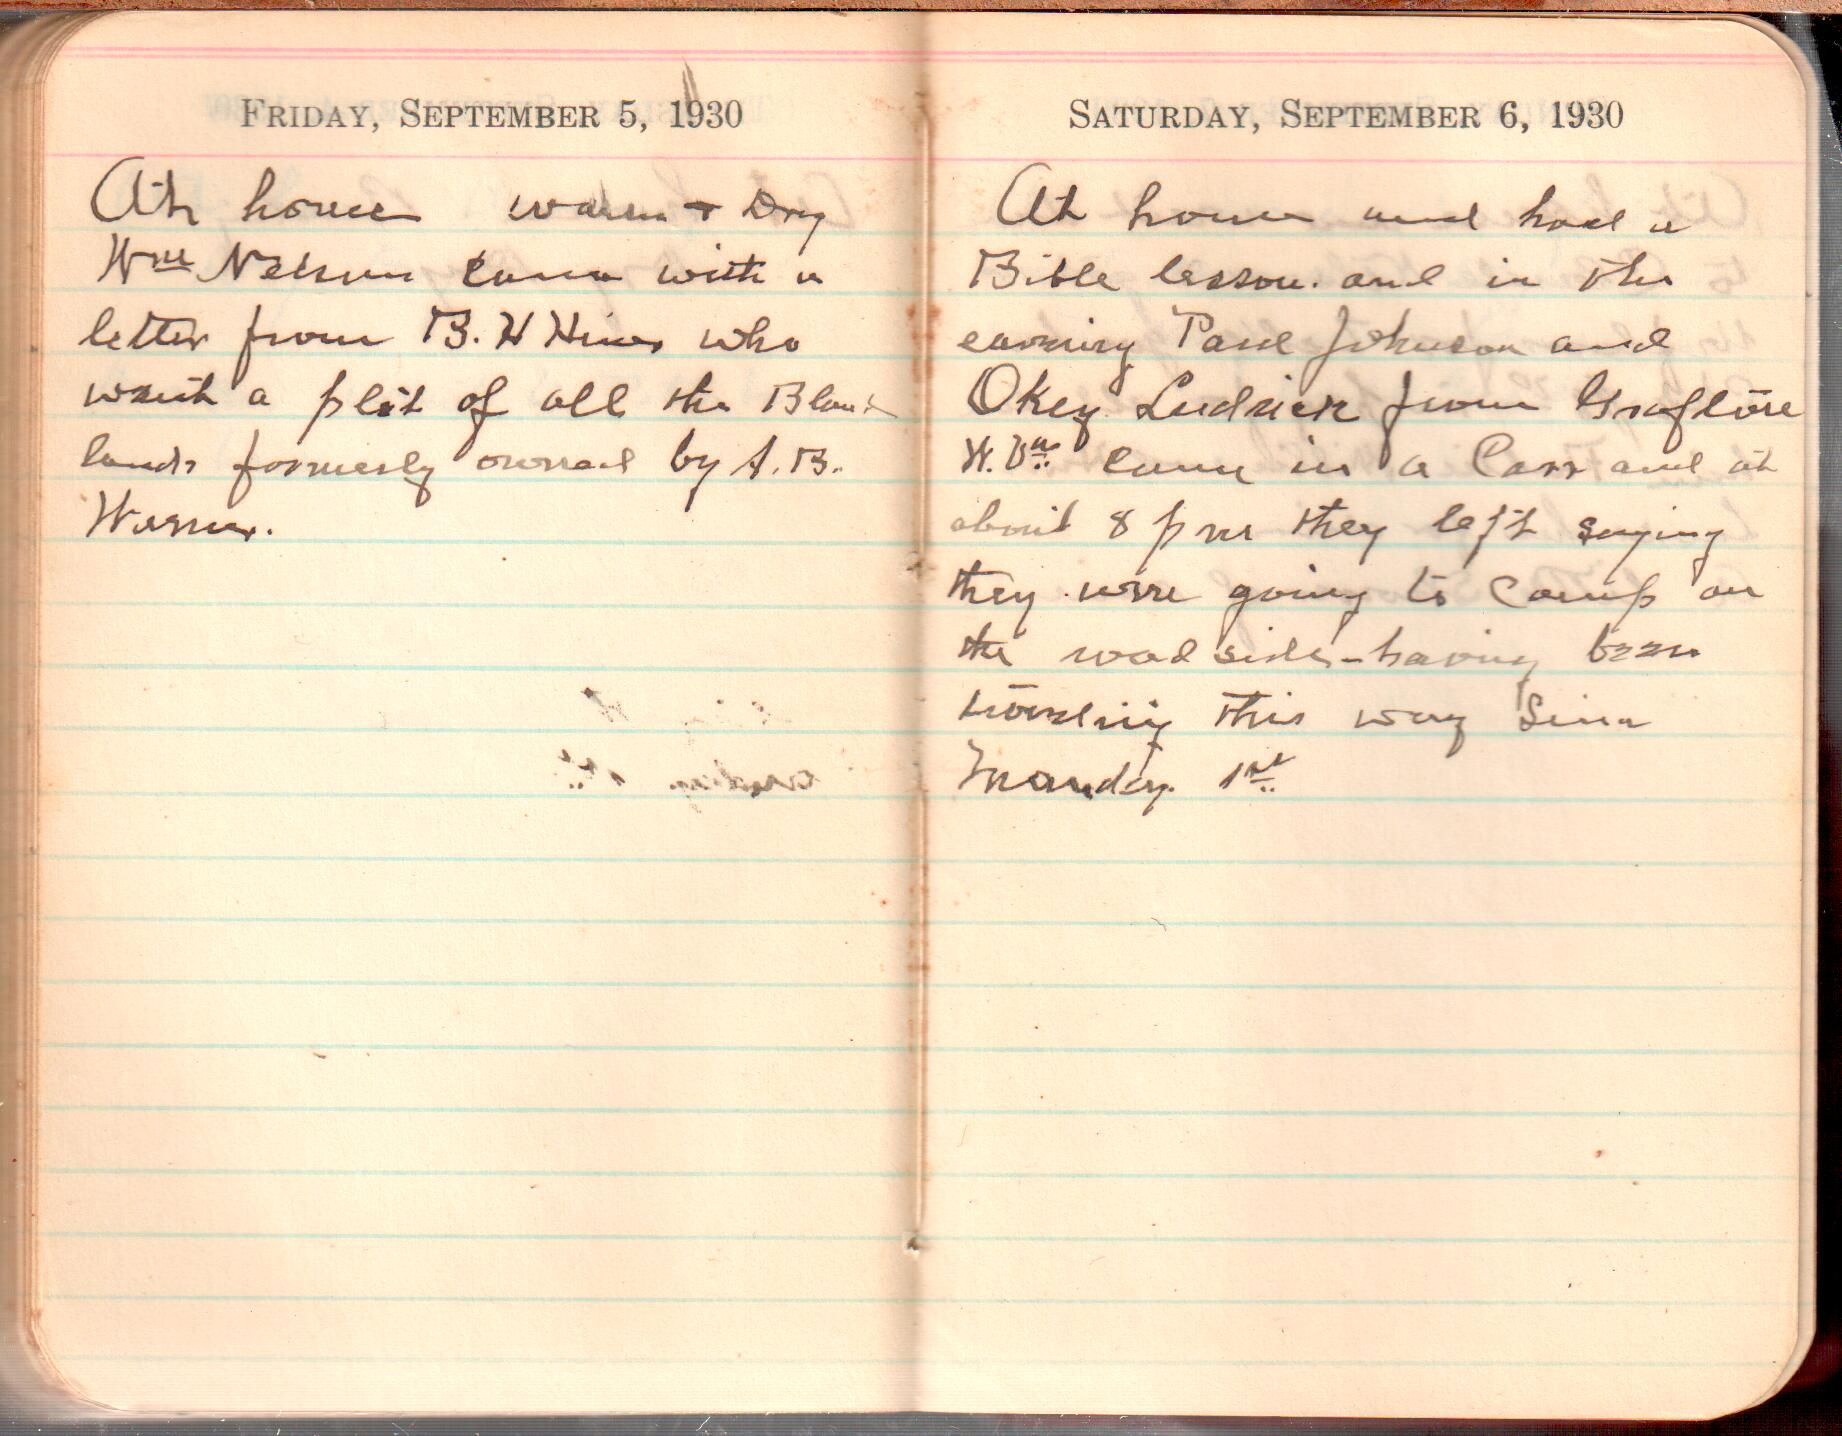 FRIDAY, SEPTEMBER 5, 1930
At home warm & Dry
Wm Nelson came with a
letter from B. H Hiner who
want a plat of all the Blank
lands formerly owned by A. B.
Warner.
SATURDAY, SEPTEMBER 6, 1930
At home and had a
Bible lesson. and in the
evening Paul Johnson and
Okey Ludrick from Graftore
W. Va came in a Carr and at
about 8 pm they left saying
they were going to camp on
the road side - having been
traveling this way Since
Monday. 1st